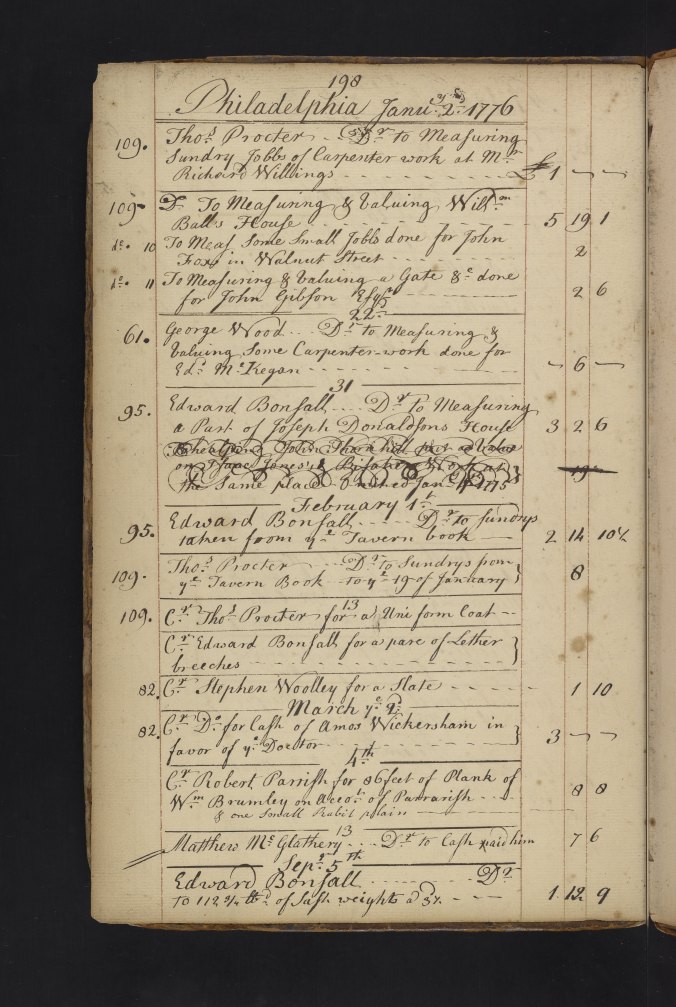 198
Philadelphia Janu.ʸ 2.ᵈ 1776
109. Tho.ˢ Procter .. D.ʳ to Measuring
Sundry Jobbs of Carpenter work at M.ʳ
Richard Willings - - - £ 1 — —
109 D.º To Measuring & Valuing Will.ᵐ
Ball's House - - - 5 19 1
d.º 10 To Meas. Some Small Jobbs done for John
Fox in Walnut Street - - - 2
d.º 11 To Measuring & Valuing a Gate &.ᶜ done
for John Gibson Esq.ʳ — 2 6
22
61. George Wood ... D.ʳ to Measuring &
Valuing Some Carpenter-work done for
Ed.ᵈ M.ᶜKegan - - - — 6 —
31
95. Edward Bonsall .... D.ʳ To Measuring
a Part of Joseph Donaldsons House 3 2 6
John Thornhill
on Isaac Jones's Work at
the Same place 1775
February 1.ᵗ
95. Edward Bonsall ..... D.ʳ to Sundrys
taken from y.ᵉ Tavern book — 2 14 10½
109. Tho.ˢ Procter .... D.ʳ to Sundrys from
y.ᵉ Tavern Book - to y.ᵉ 19 of January } 8
13
109. C.ʳ Tho.ˢ Procter for a Uniform Coat - -
C.ʳ Edward Bonsall for a pare of Lether }
breeches - - -
82. C.ʳ Stephen Woolley for a Slate - - - 1 10
March y.ᵉ 2.ᵈ
82. C.ʳ D.º for Cash of Amos Wickersham in }
favor of y.ᵉ Doctor - - - 3 — —
4.ᵗʰ
C.ʳ Robert Parrish for 86 feet of Plank of
W.ᵐ Brumley on Acco.ᵗ of Parrarish - - 8 8
& one Small Rabit plain
13
Matthew M.ᶜGlathery ... D.ʳ to Cash paid him 7 6
Sep.ᵗ 5.ᵗʰ
Edward Bonsall ..... D.ʳ
To 112¾ lb.ˢ of Sash weights a 3½. - - 1 12 9